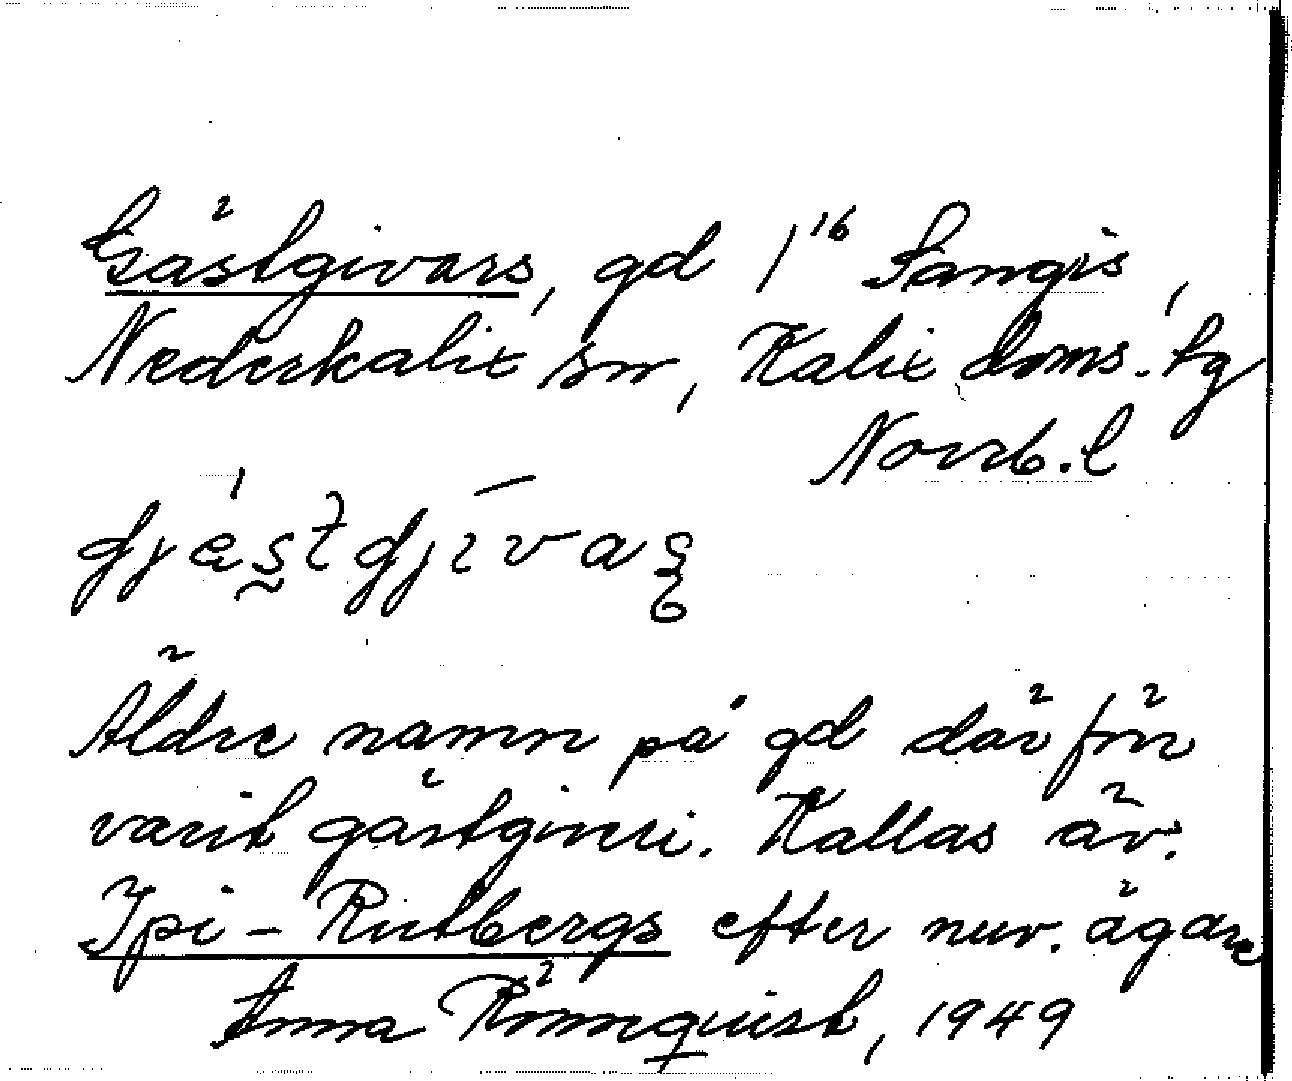 Gästgivars, gd 1¹⁶ Sangis,
Nederkalix sn, Kalix doms. tg
Norrb. l
Äldre namn på gd där förr
varit gästgiveri. Kallas äv.
Ipi-Rutbergs efter nuv. ägare
Anna Rönnquist, 1949